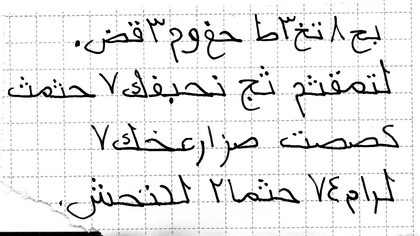 بح٨تخ٣ط حغوم٣قض.
لتمقثم ثج نحبفك٧حثمث
كصصت صزارعخك٧
لرام٧٤ حثما٢ للنحش.